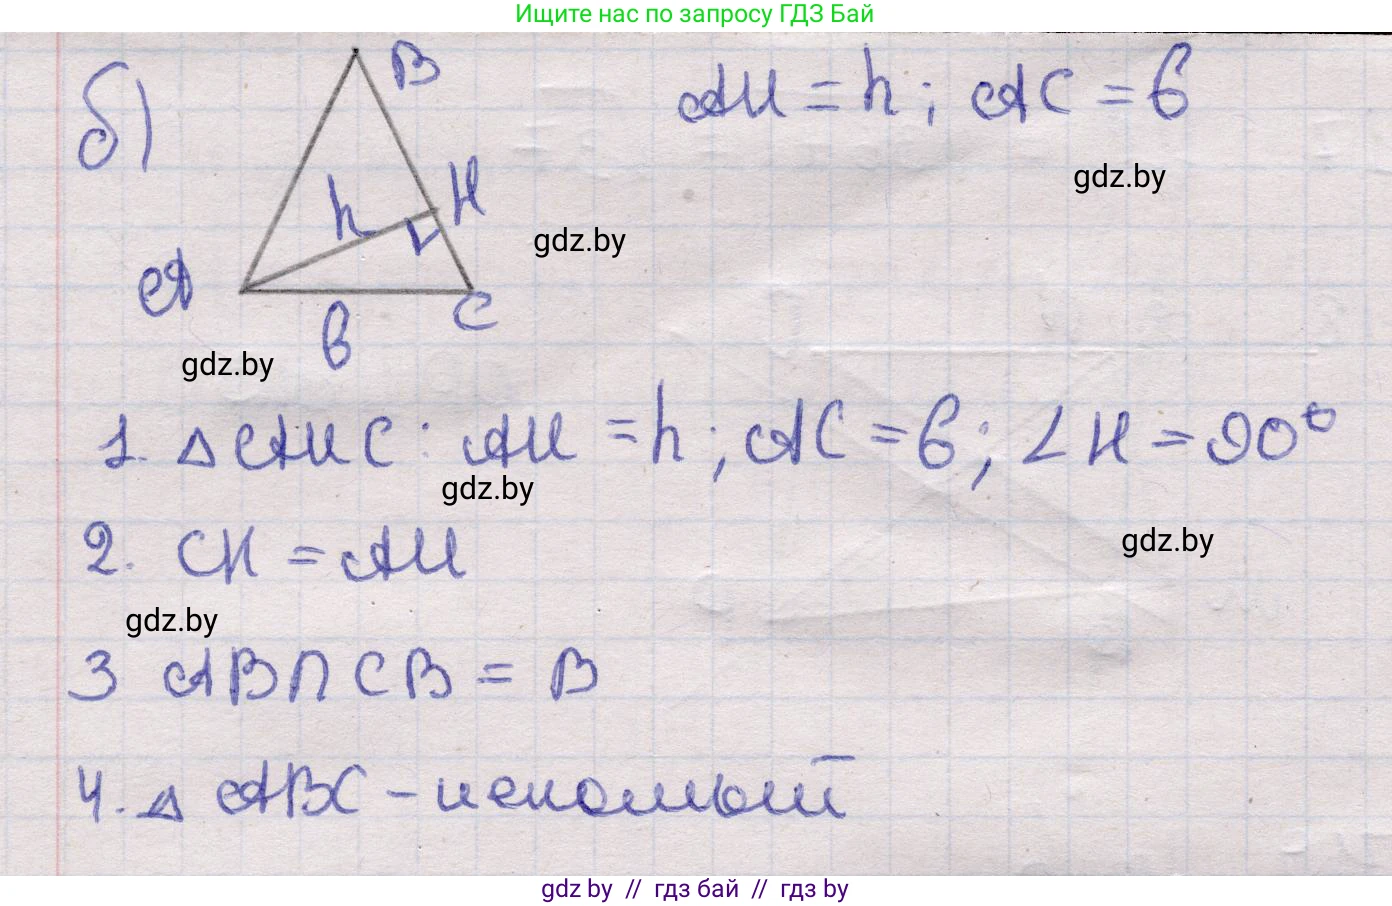 Ищите нас по запросу ГДЗ Бай
б)
B
AH = h; AC = b
gdz.by
h
H
gdz.by
A
C
b
gdz.by
1. △ AHC: AH = h; AC = b; ∠H = 90°
gdz.by
gdz.by
2. CK = AH
gdz.by
3 AB ∩ CB = B
4. △ ABC - искомый
gdz.by // гдз бай // гдз by